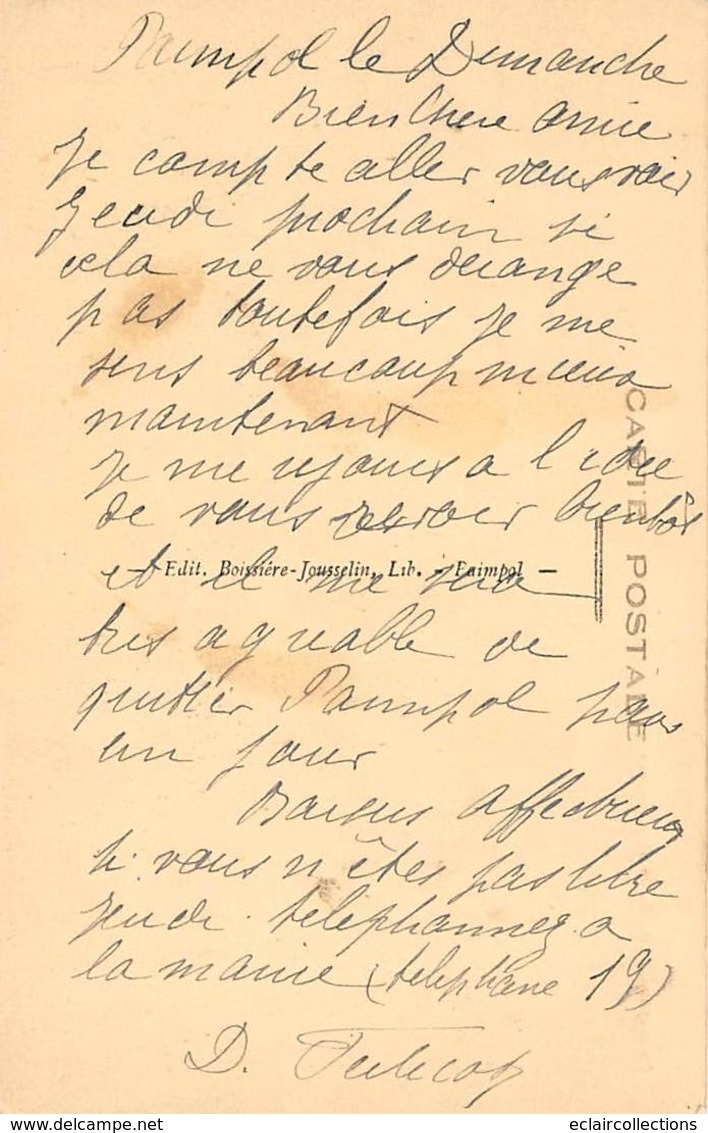 Paimpol le Dimanche
Bien Chere amie
Je compte aller vous voir
Jeudi prochain si
cela ne vous derange
pas toutefois je me
sens beaucoup mieux
maintenant
Je me rejouis a l'idee
de vous revoir bientôt
— Edit. Boissière-Jousselin, Lib. - Paimpol —
et il me sera
tres agreable de
quitter Paimpol pour
un jour
Baisers affectueux
si vous n'êtes pas libre
jeudi. telephonnez a
la mairie (telephone 19)
D.
CARTE POSTALE
eclaircollections